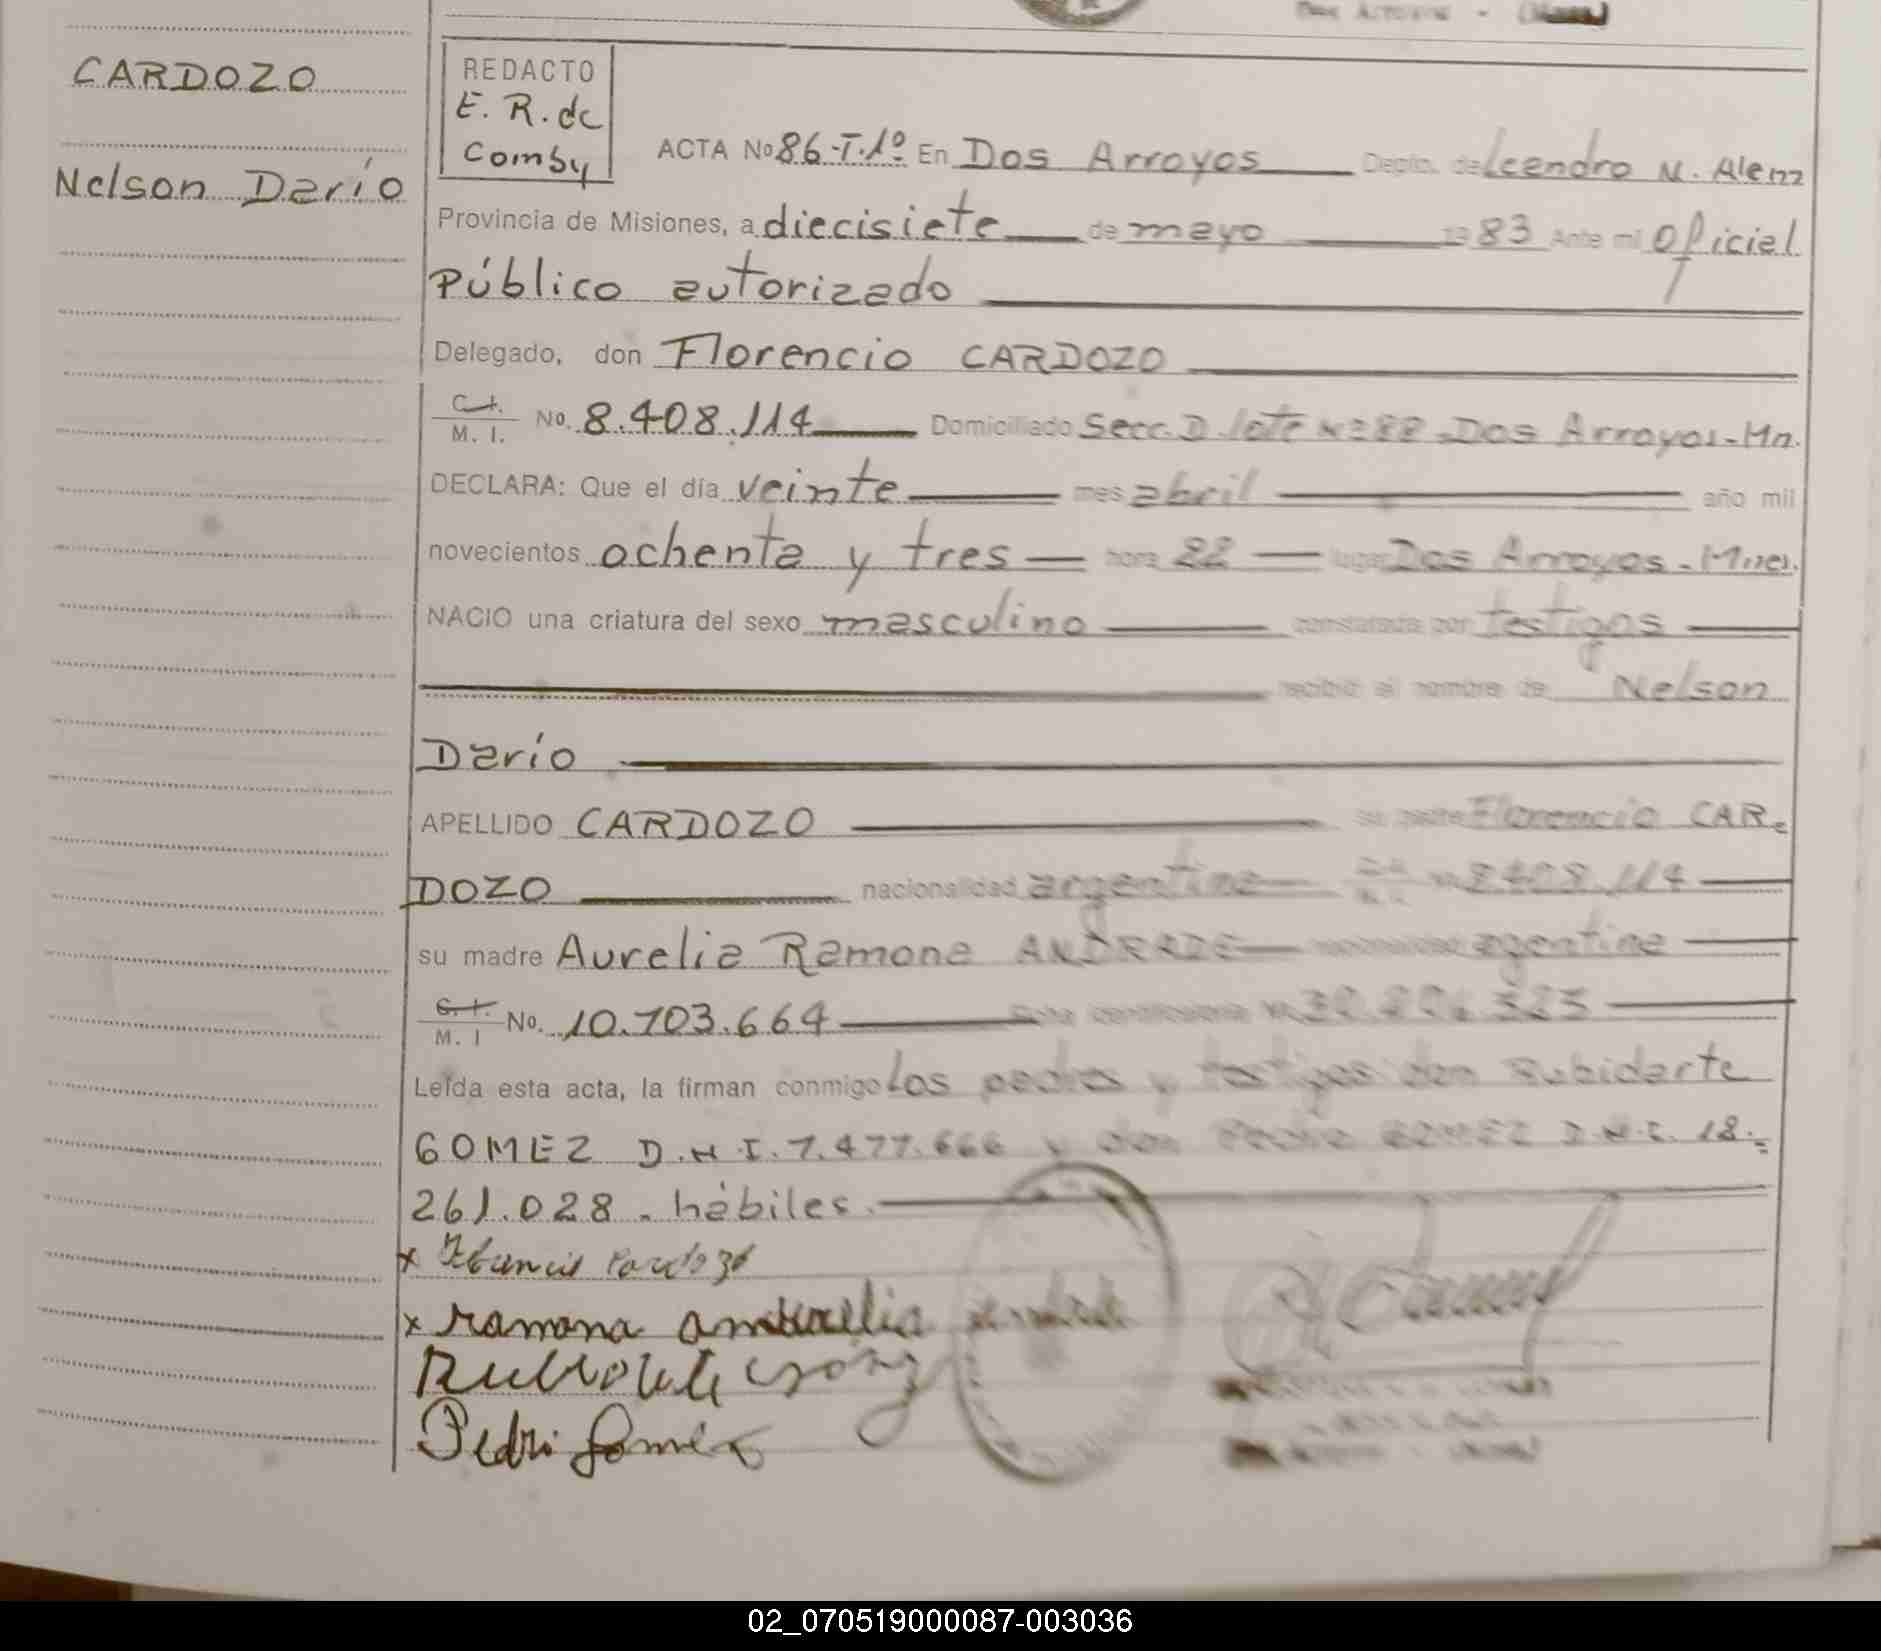 CARDOZO
Nelson Darío
REDACTO
E. R. de
Comby
ACTA No 86-T.1º En Dos Arroyos Depto. de Leandro N. Alem
Provincia de Misiones, a diecisiete de mayo 1983 Ante mi Oficial
Público autorizado
Delegado, don Florencio CARDOZO
C.I. M. I. No. 8.408.114 Domiciliado Secc. D lote Nº 88 Dos Arroyos-Mn.
DECLARA: Que el día veinte mes abril año mil
novecientos ochenta y tres hora 22 lugar Dos Arroyos-Mnes.
NACIO una criatura del sexo masculino constatada por testigos
recibió el nombre de Nelson
Darío
APELLIDO CARDOZO su padre Florencio CAR=
DOZO nacionalidad argentina 8.408.114
su madre Aurelia Ramona ANDRADE nacionalidad agentina
C.I. M. I No. 10.703.664
Leída esta acta, la firman conmigo los padres y testigos don Rubidarte
GOMEZ D.N.I. 7.477.666 y don Pedro GOMEZ D.N.I. 18.=
261.028. hábiles.
x Cardozo
x ramona
Pedro Gomez
02_070519000087-003036